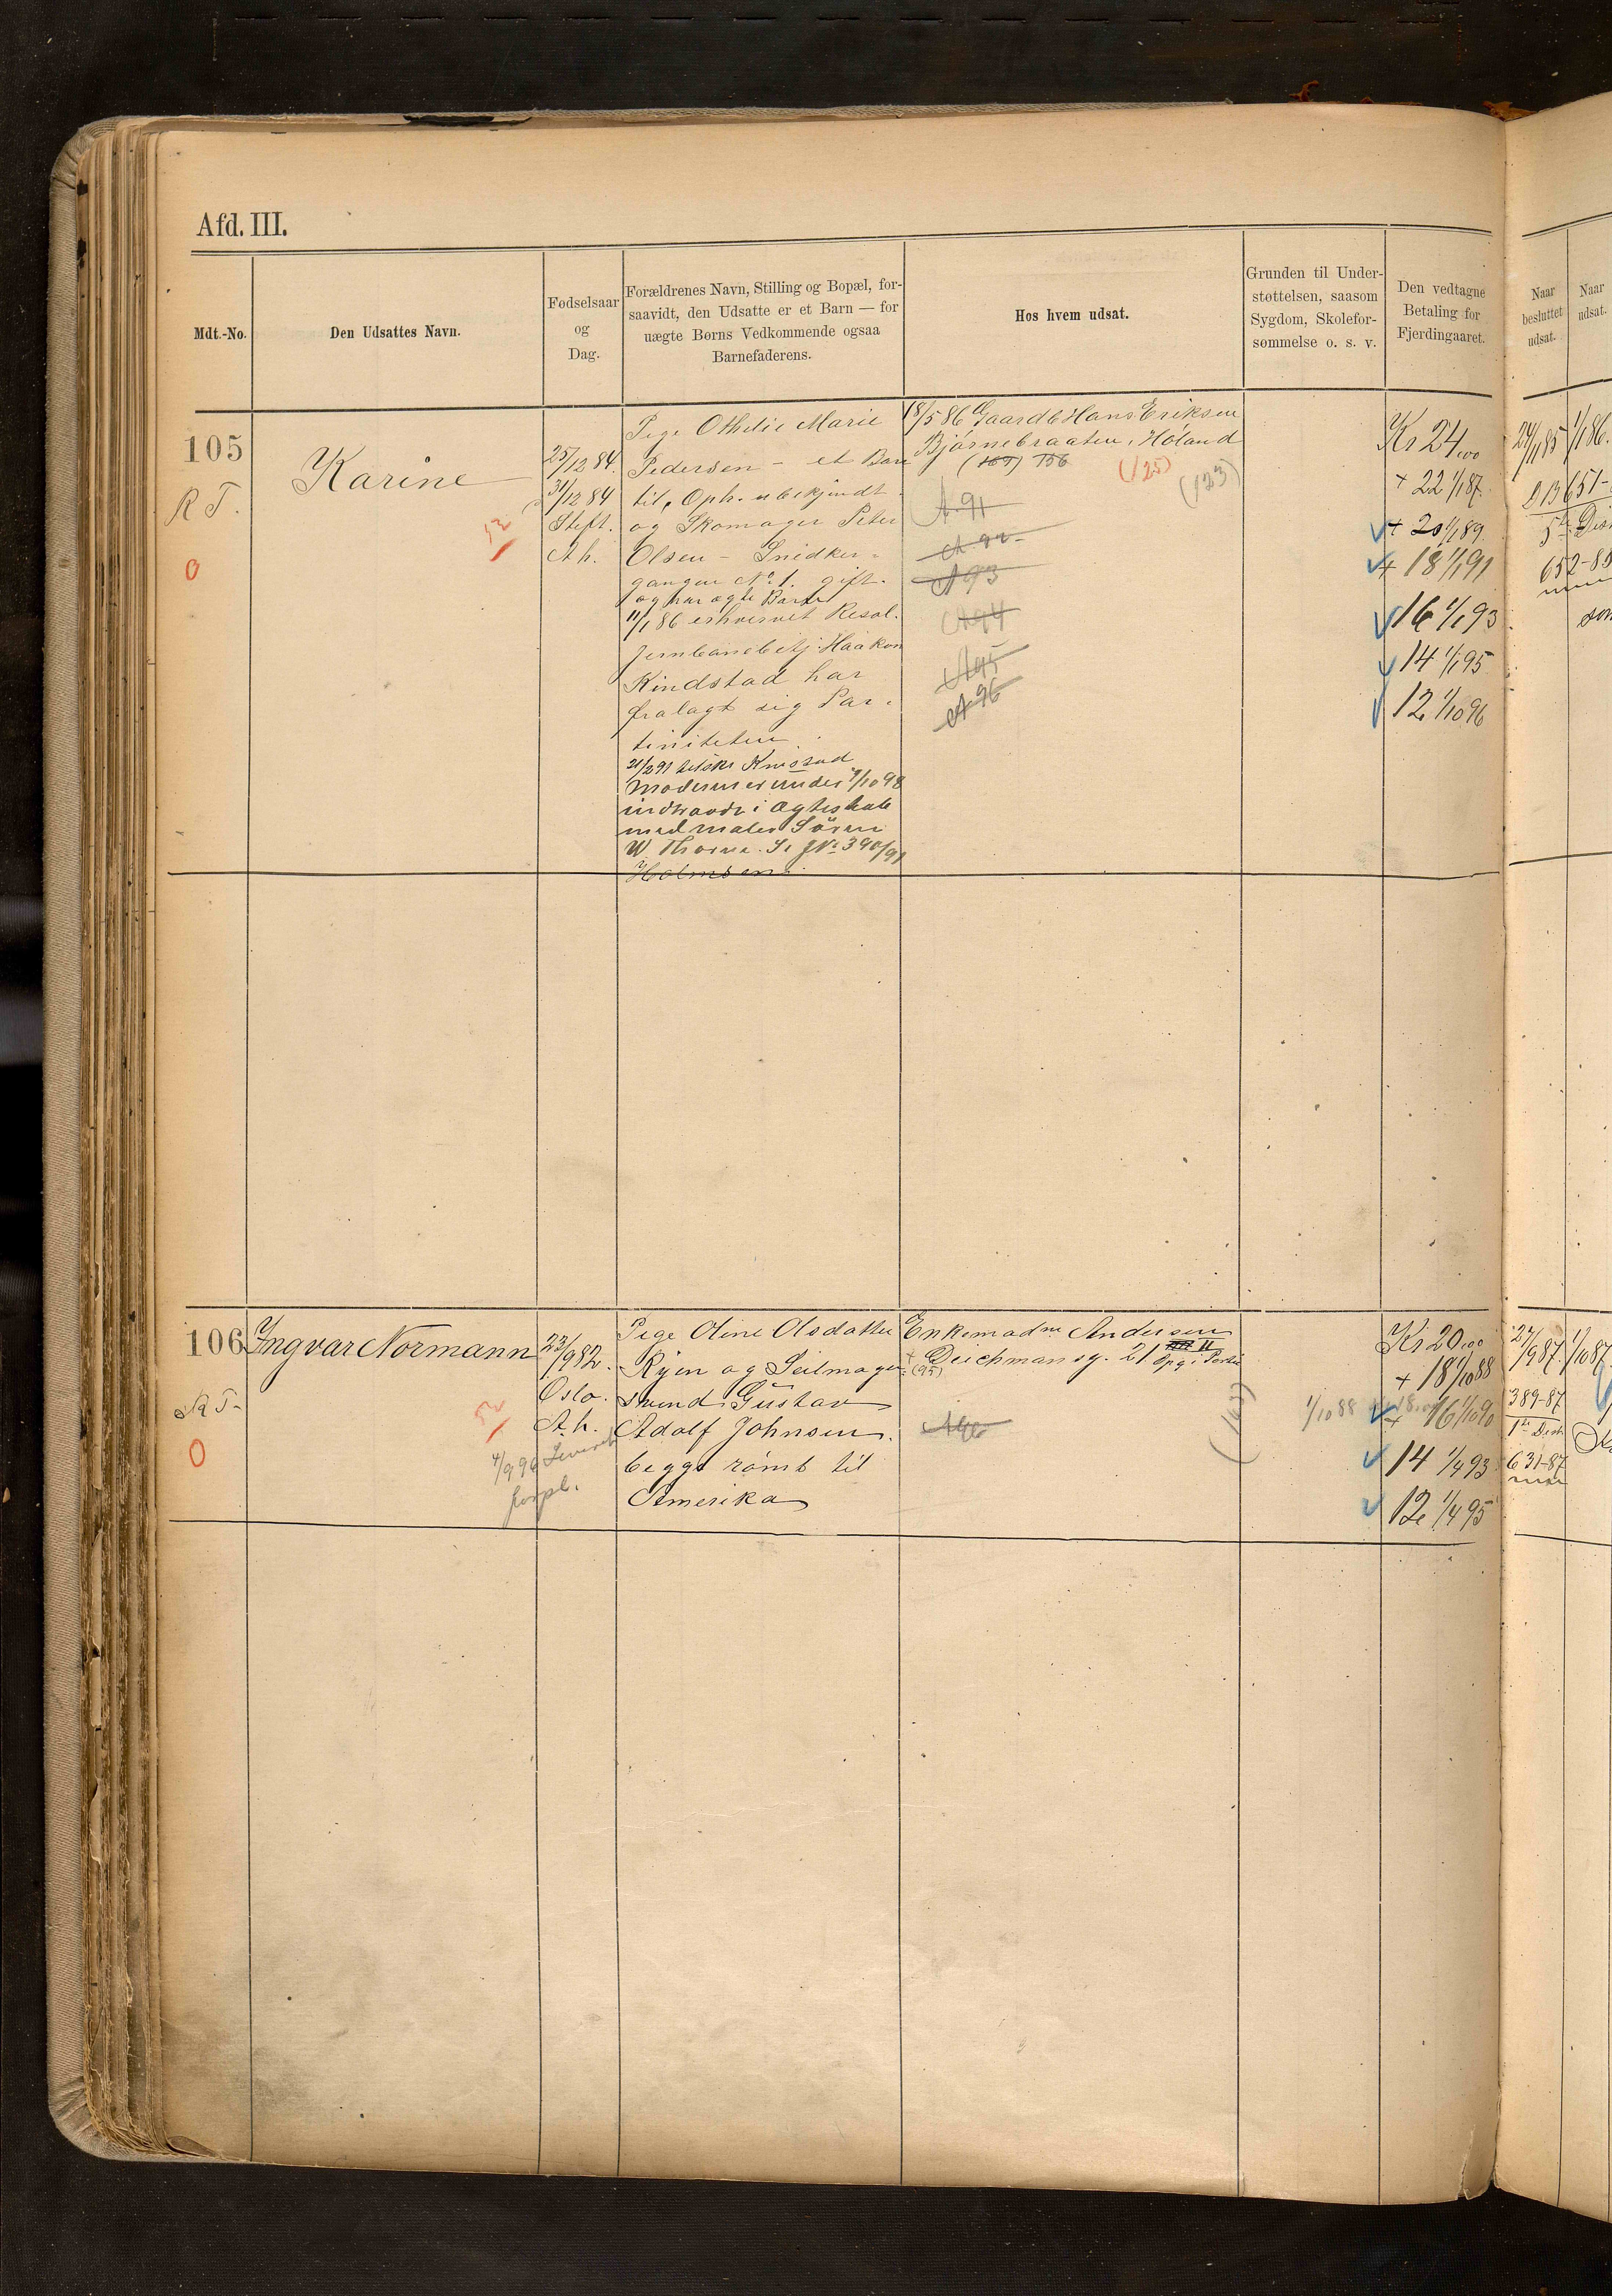 Afd. III.
Mdt.-No.
Den Udsattes Navn.
Fødselsaar
og
Dag.
Forældrenes Navn, Stilling og Bopæl, for-
saavidt, den Udsatte er et Barn — for
uægte Børns Vedkommende ogsaa
Barnefaderens.
Hos hvem udsat.
Grunden til Under-
støttelsen, saasom
Sygdom, Skolefor-
sømmelse o. s. v.
Den vedtagne
Betaling for
Fjerdingaaret.
Naar
besluttet
udsat.
Naar
udsat.
105
R T.
0
Karine
52
25/12 84.
31/12 84
Steft.
A h.
Pige Othelie Marie
Pedersen - et Barn
til, Oph. ubekjendt
og Skomager Peter
Olsen - Snidker-
gangen No 1. gift.
og har ægte Barn
11/1 86 erhvervet Resol.
Jernbanebetj. Haakon
Kindstad har
fralagt sig Pa-
terniteten.
Moderen er under 9/10 98
indtraadt i Ægteskab
med maler Søren
W. Thorne. Se JNo 390/99
Holmsen
18/5 86 Gaardb Hans Eriksen
Bjørnebraaten, Høland
(169) 156
(125)
(123)
A 91
A 92
A 93
A 94
A 95
A 96
Kr 24,00
+ 22 1/1 87.
+ 20 1/1 89.
+ 18 1/1 91
16 1/1 93
14 1/1 95
12 1/10 96
24/11 85
1/1 86.
651-
5te Dist
652-85
106
R T-
0
Ingvar Normann
52
23/9 82.
Oslo.
A. h.
4/9 96 Leveret
forpl.
Pige Oline Olsdatter
Ryen og Seilmager-
svend Gustav
Adolf Johnsen.
begge rømt til
Amerika
Enkemadm Andersen
Deichmansg. 21 II
Opg. i Portn
(95)
A 96
1/10 88
Kr 20,00
+ 18 1/10 88
+ 16 1/10 90
14 1/4 93
12 1/4 95
27/9 87.
1/10 87
389-87
1te Dist
631-87